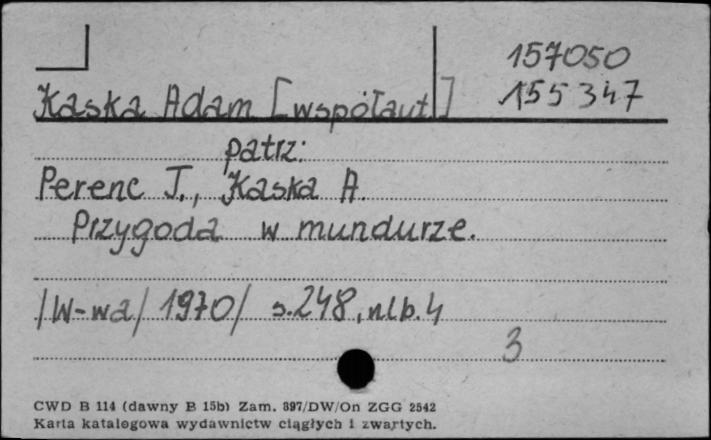 157050
Kaska Adam [współaut] 155347
patrz:
Perenc J., Kaska A.
Przygoda w mundurze.
/W-wa/ 1970/ s.248, nlb.4
3
CWD B 114 (dawny B 15b) Zam. 897/DW/On ZGG 2542
Karta katalogowa wydawnictw ciągłych i zwartych.